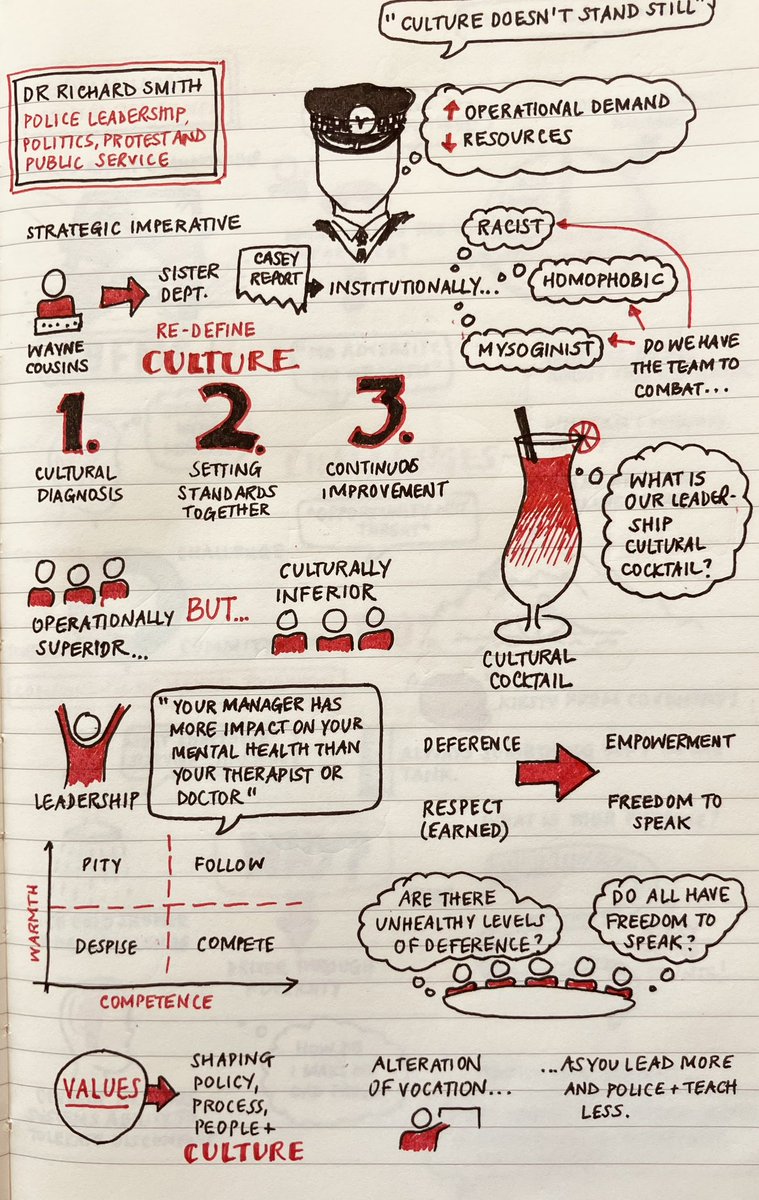 "CULTURE DOESN'T STAND STILL"
DR RICHARD SMITH
POLICE LEADERSHIP,
POLITICS, PROTEST AND
PUBLIC SERVICE
↑ OPERATIONAL DEMAND
↓ RESOURCES
STRATEGIC IMPERATIVE
WAYNE
COUSINS
SISTER
DEPT.
CASEY
REPORT
INSTITUTIONALLY...
RACIST
HOMOPHOBIC
MYSOGINIST
DO WE HAVE
THE TEAM TO
COMBAT...
RE-DEFINE
CULTURE
1.
CULTURAL
DIAGNOSIS
2.
SETTING
STANDARDS
TOGETHER
3.
CONTINUOS
IMPROVEMENT
WHAT IS
OUR LEADER-
SHIP
CULTURAL
COCKTAIL?
CULTURAL
COCKTAIL
OPERATIONALLY
SUPERIOR...
BUT...
CULTURALLY
INFERIOR
LEADERSHIP
"YOUR MANAGER HAS
MORE IMPACT ON YOUR
MENTAL HEALTH THAN
YOUR THERAPIST OR
DOCTOR"
DEFERENCE
EMPOWERMENT
RESPECT
(EARNED)
FREEDOM TO
SPEAK
WARMTH
PITY
FOLLOW
DESPISE
COMPETE
COMPETENCE
ARE THERE
UNHEALTHY LEVELS
OF DEFERENCE?
DO ALL HAVE
FREEDOM TO
SPEAK?
VALUES
SHAPING
POLICY,
PROCESS,
PEOPLE +
CULTURE
ALTERATION
OF VOCATION...
...AS YOU LEAD MORE
AND POLICE + TEACH
LESS.